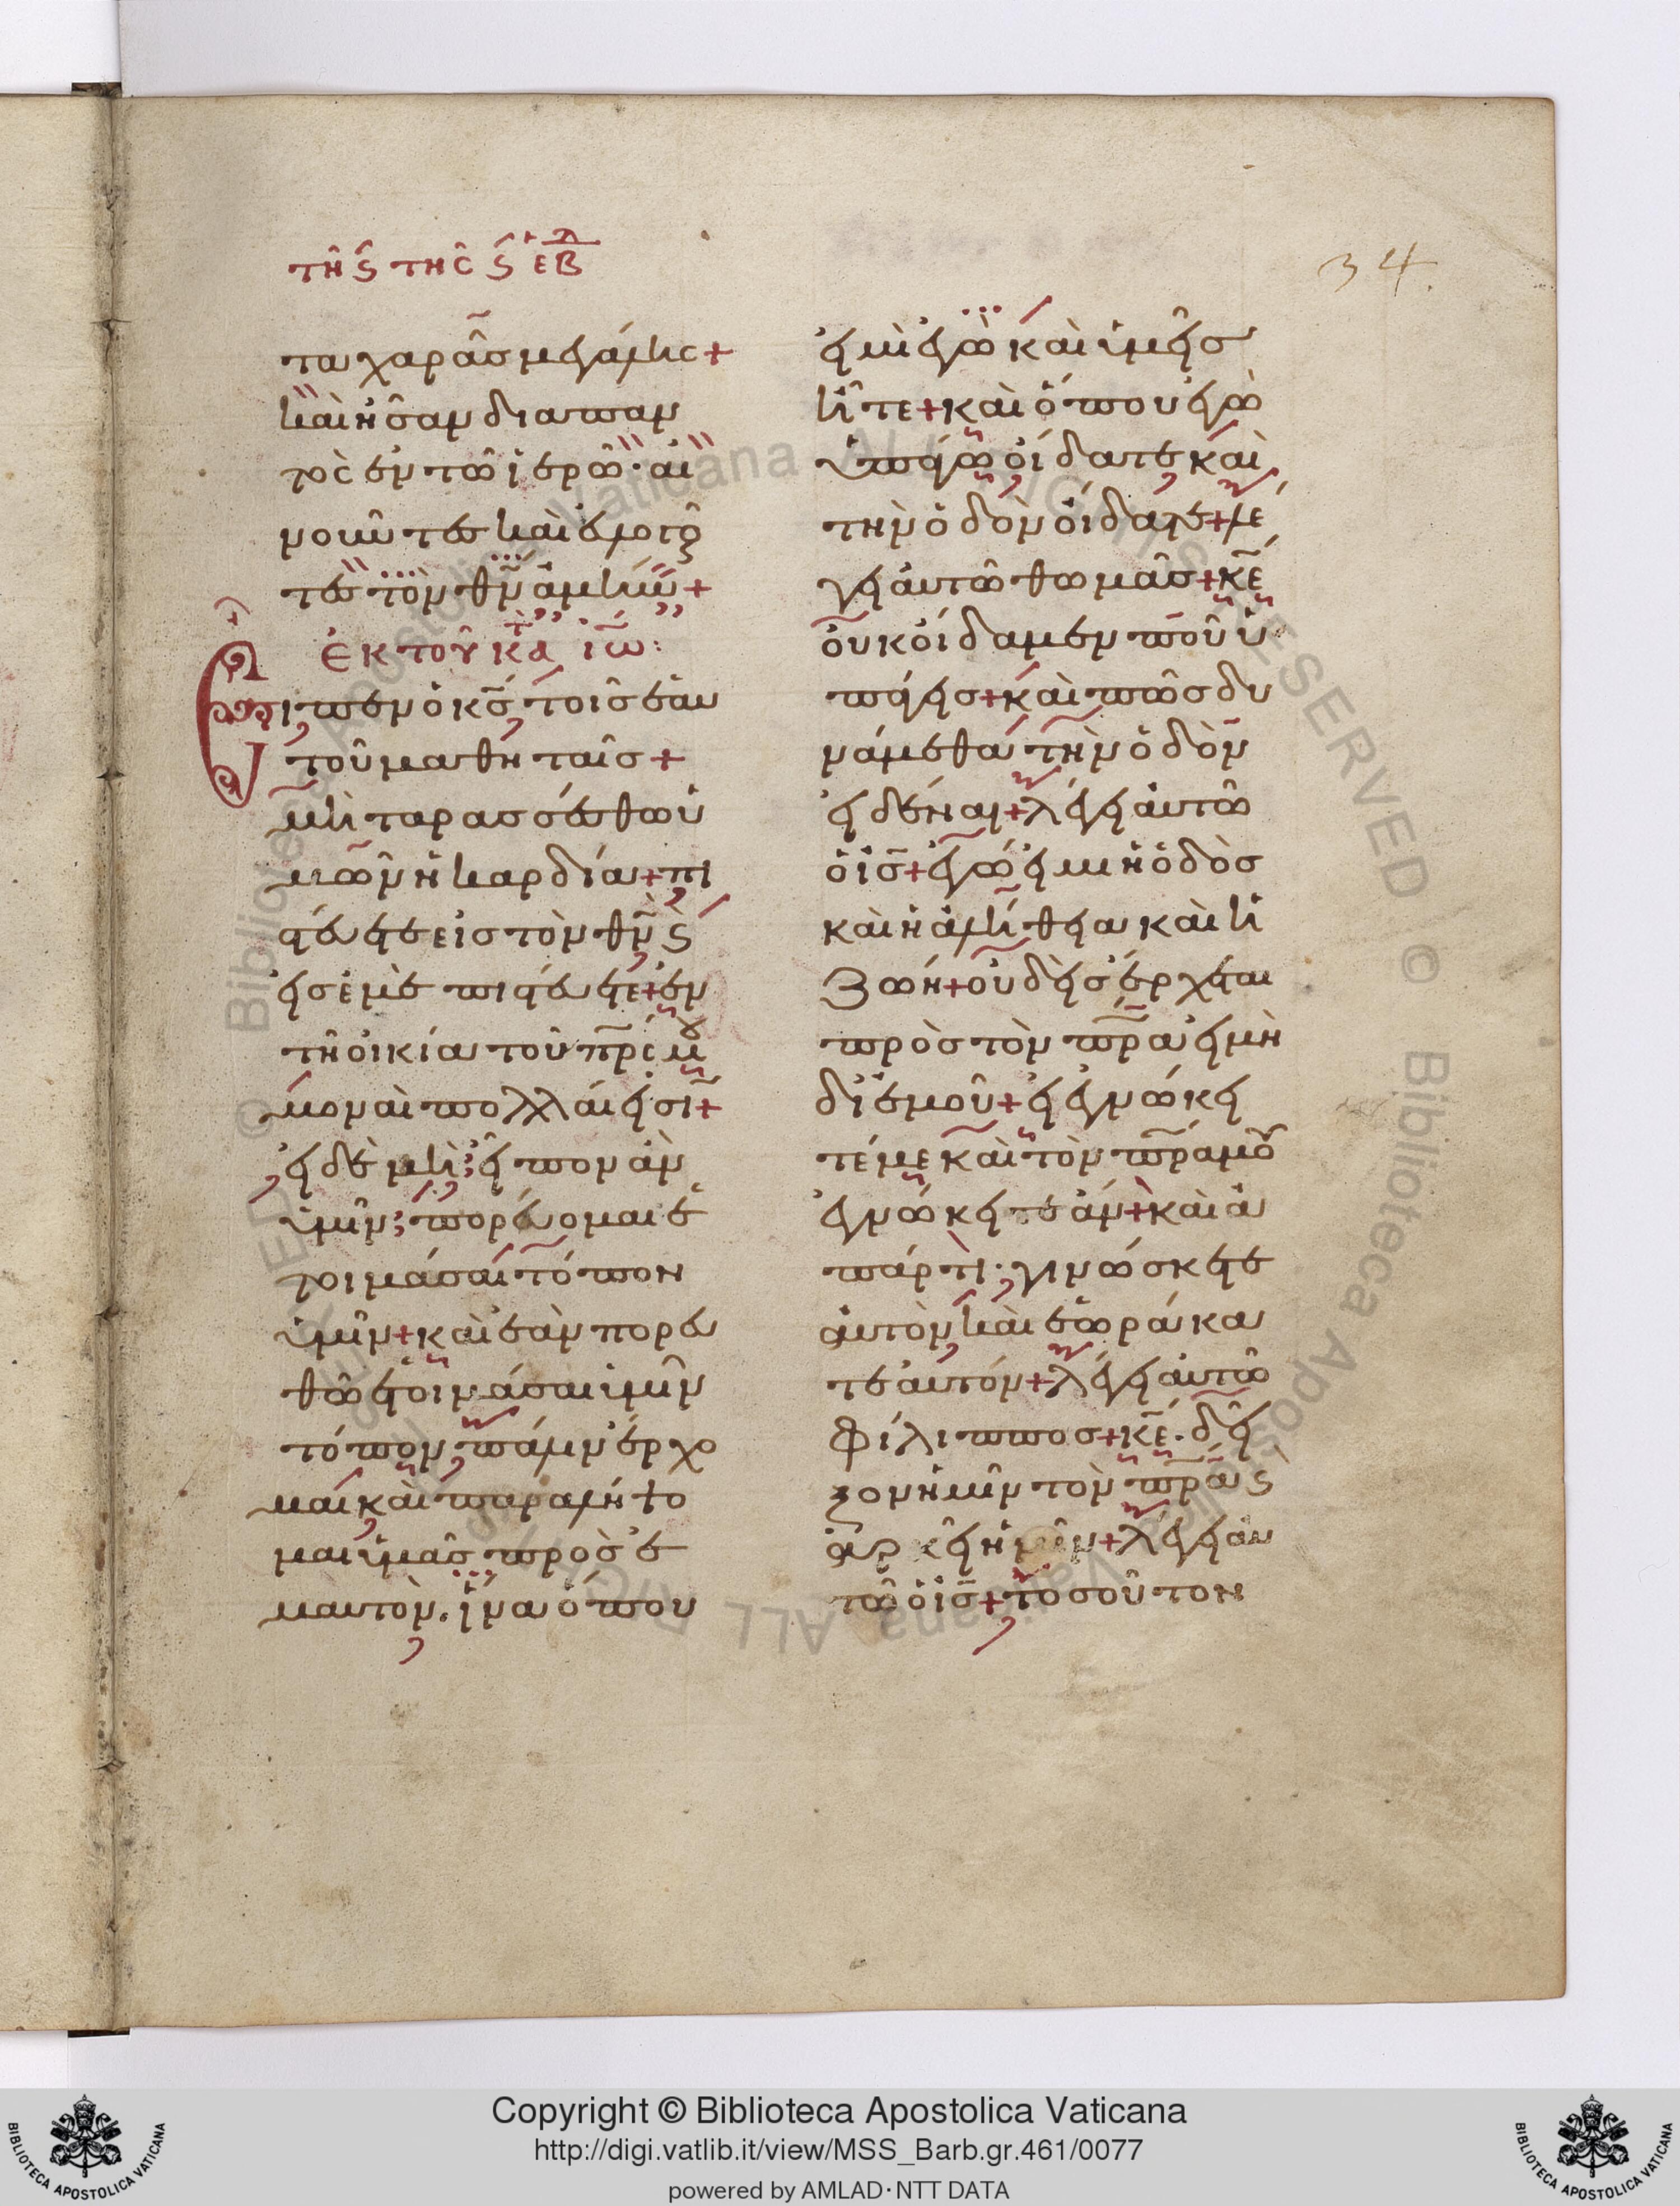 τῆ ς τῆς ς ἑβ
34.
τα χαρᾶσ μεγάλησ+
καὶ ἦσαν διαπαν
τὸσ ἐν τῶ ἱερῶ· αἰ
νοῦντεσ καὶ εὐλογοῦ
τεσ τὸν θ̅ν̅ ἀμήν+
ἐκ τοῦ κατὰ ἰω̅:
Εἶπεν ὁ κ̅σ̅ τοῖσ ἑαυ
τοῦ μαθηταῖσ+
μὴ ταρασσέσθω ὑ
μῶν ἡ καρδία+ πι
στεύετε εἰσ τὸν θ̅ν̅ ϛ
εἰσ ἐμὲ πιστεύετε+ ἐν
τῆ οἰκία τοῦ π̅ρ̅ς μου
μοναὶ πολλαί εἰσι+
εἰ δὲ μὴ; εἶπον ἂν
ὑμῖν; πορεύομαι ἑ
τοιμάσαι τόπον
ὑμῖν+ καὶ ἐὰν πορευ
θῶ ἑτοιμάσαι ὑμῖν
τόπον, πάλιν ἔρχο
μαι καὶ παραλήψο
μαι ὑμᾶσ πρὸσ ἐ
μαυτόν. ἵνα ὅπου
εἰμὶ ἐγὼ καὶ ὑμεῖσ
ἦτε+ καὶ ὅπου ἐγὼ
ὑπάγω οἴδατε καὶ
τὴν ὁδὸν οἴδατε+ λέ
γει αὐτῶ θωμᾶσ+ κ̅ε̅
οὐκ οἴδαμεν ποῦ ὑ
πάγεισ+ καὶ πῶσ δυ
νάμεθα τὴν ὁδὸν
εἰδέναι+ λέγει αὐτῶ
ὁ ἰ̅σ̅+ ἐγώ εἰμι ἡ ὁδὸσ
καὶ ἡ ἀλήθεια καὶ ἡ
ζωή+ οὐδεὶσ ἔρχεται
πρὸσ τὸν π̅ρ̅α εἰ μὴ
δι ἐμοῦ+ εἰ ἐγνώκει
τέ με καὶ τὸν π̅ρ̅α μου
ἐγνώκειτε ἄν+ καὶ ἀ
πάρτι· γινώσκετε
αὐτὸν, καὶ ἑωράκα
τε αὐτόν+ λέγει αὐτῶ
φίλιπποσ+ κ̅ε̅. δεῖ
ξον ἡμῖν τὸν π̅ρ̅α ϛ
ἀρκεῖ ἡμῖν+ λέγει αὐ
τῶ ὁ ἰ̅σ̅+ τοσοῦτον
Copyright © Biblioteca Apostolica Vaticana
http://digi.vatlib.it/view/MSS_Barb.gr.461/0077
powered by AMLAD·NTT DATA